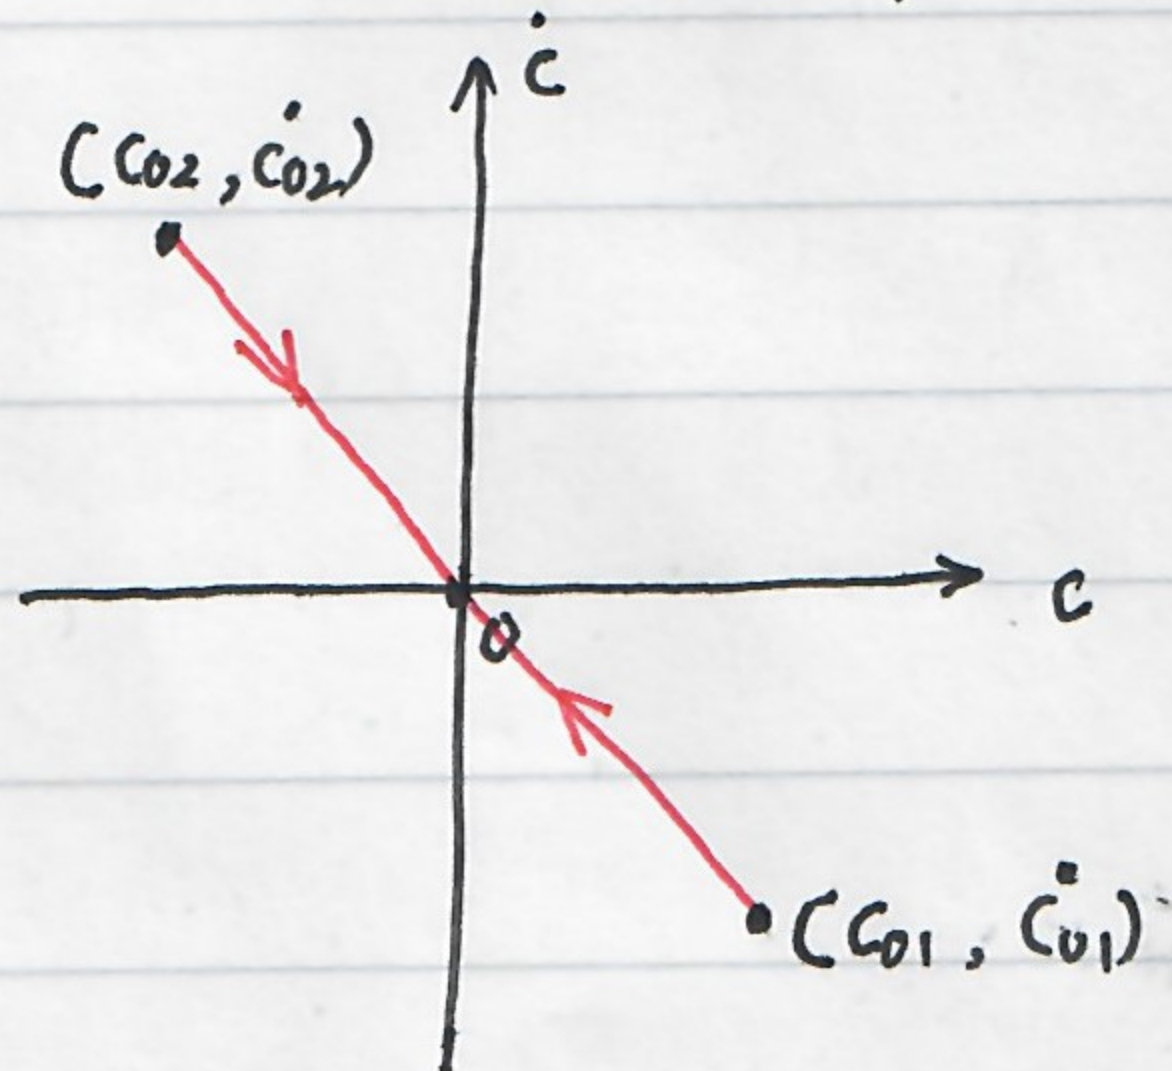 ċ
(c₀₂, ċ₀₂)
c
0
(c₀₁, ċ₀₁)